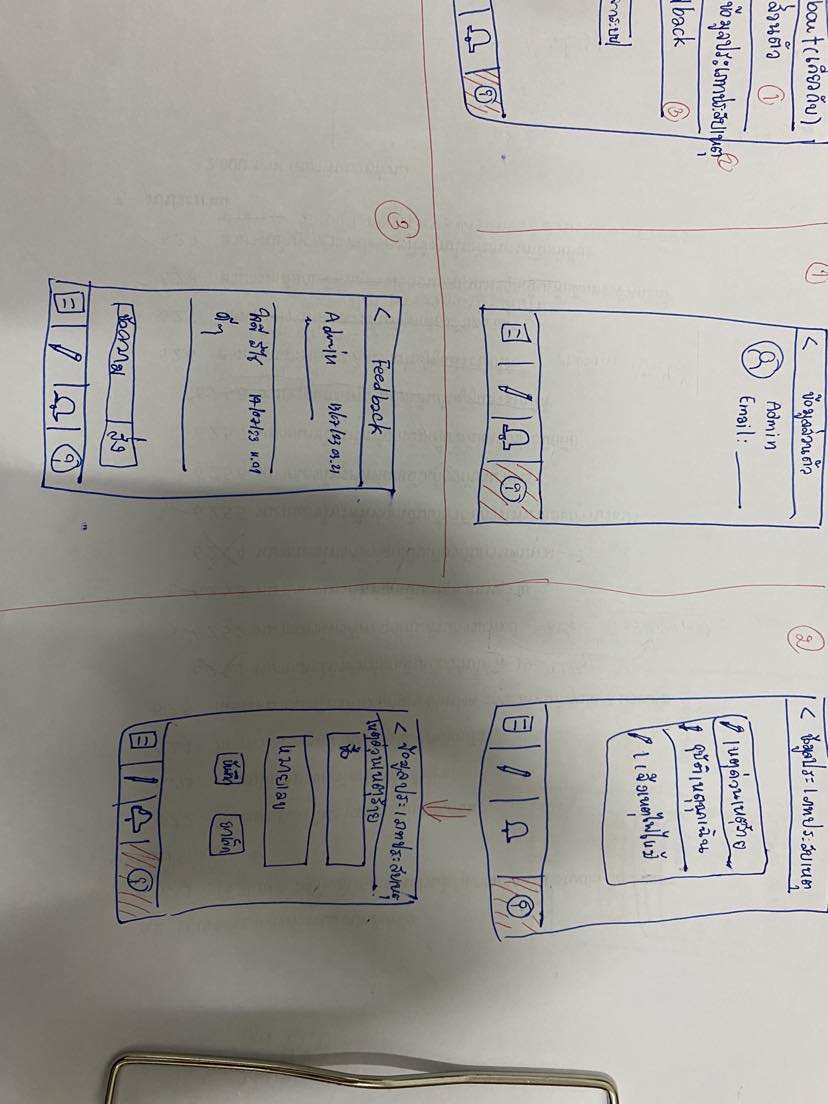 bout(เกี่ยวกับ)
ส่วนตัว ①
ข้อมูลประเภทประสบเหตุ ②
dback ③
ากระบบ
①
< ข้อมูลส่วนตัว
Admin
Email:
②
< ข้อมูลประเภทประสบเหตุ
เหตุด่วนเหตุร้าย
อุบัติเหตุฉุกเฉิน
แจ้งเหตุไฟไหม้
< ข้อมูลประเภทประสบเหตุ
เหตุด่วนเหตุร้าย
ชื่อ
หมายเลข
บันทึก ยกเลิก
③
< Feedback
Admin 13/07/23 09.21
ใจดี 14/07/23 11.01
ดีๆ
ข้อความ ส่ง